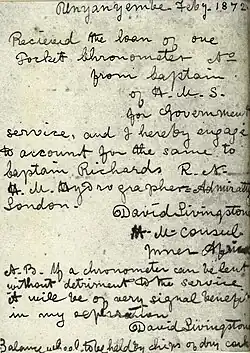 Unyanyembe Feby. 1872
Recieved the loan of one
Pocket Chronometer No
from Captain
of H. M. S.
for Government
service, and I hereby engage
to account for the same to
Captain Richards R. N.
H. M. Hydrographer Admiralty
London.
David Livingstone
H. M. Consul
Inner Africa
N. B. If a chronometer can be lent
without detriment to the service
it will be of very signal benefit
in my exploration
David Livingstone
Balance wheel to be held by chips of dry cork